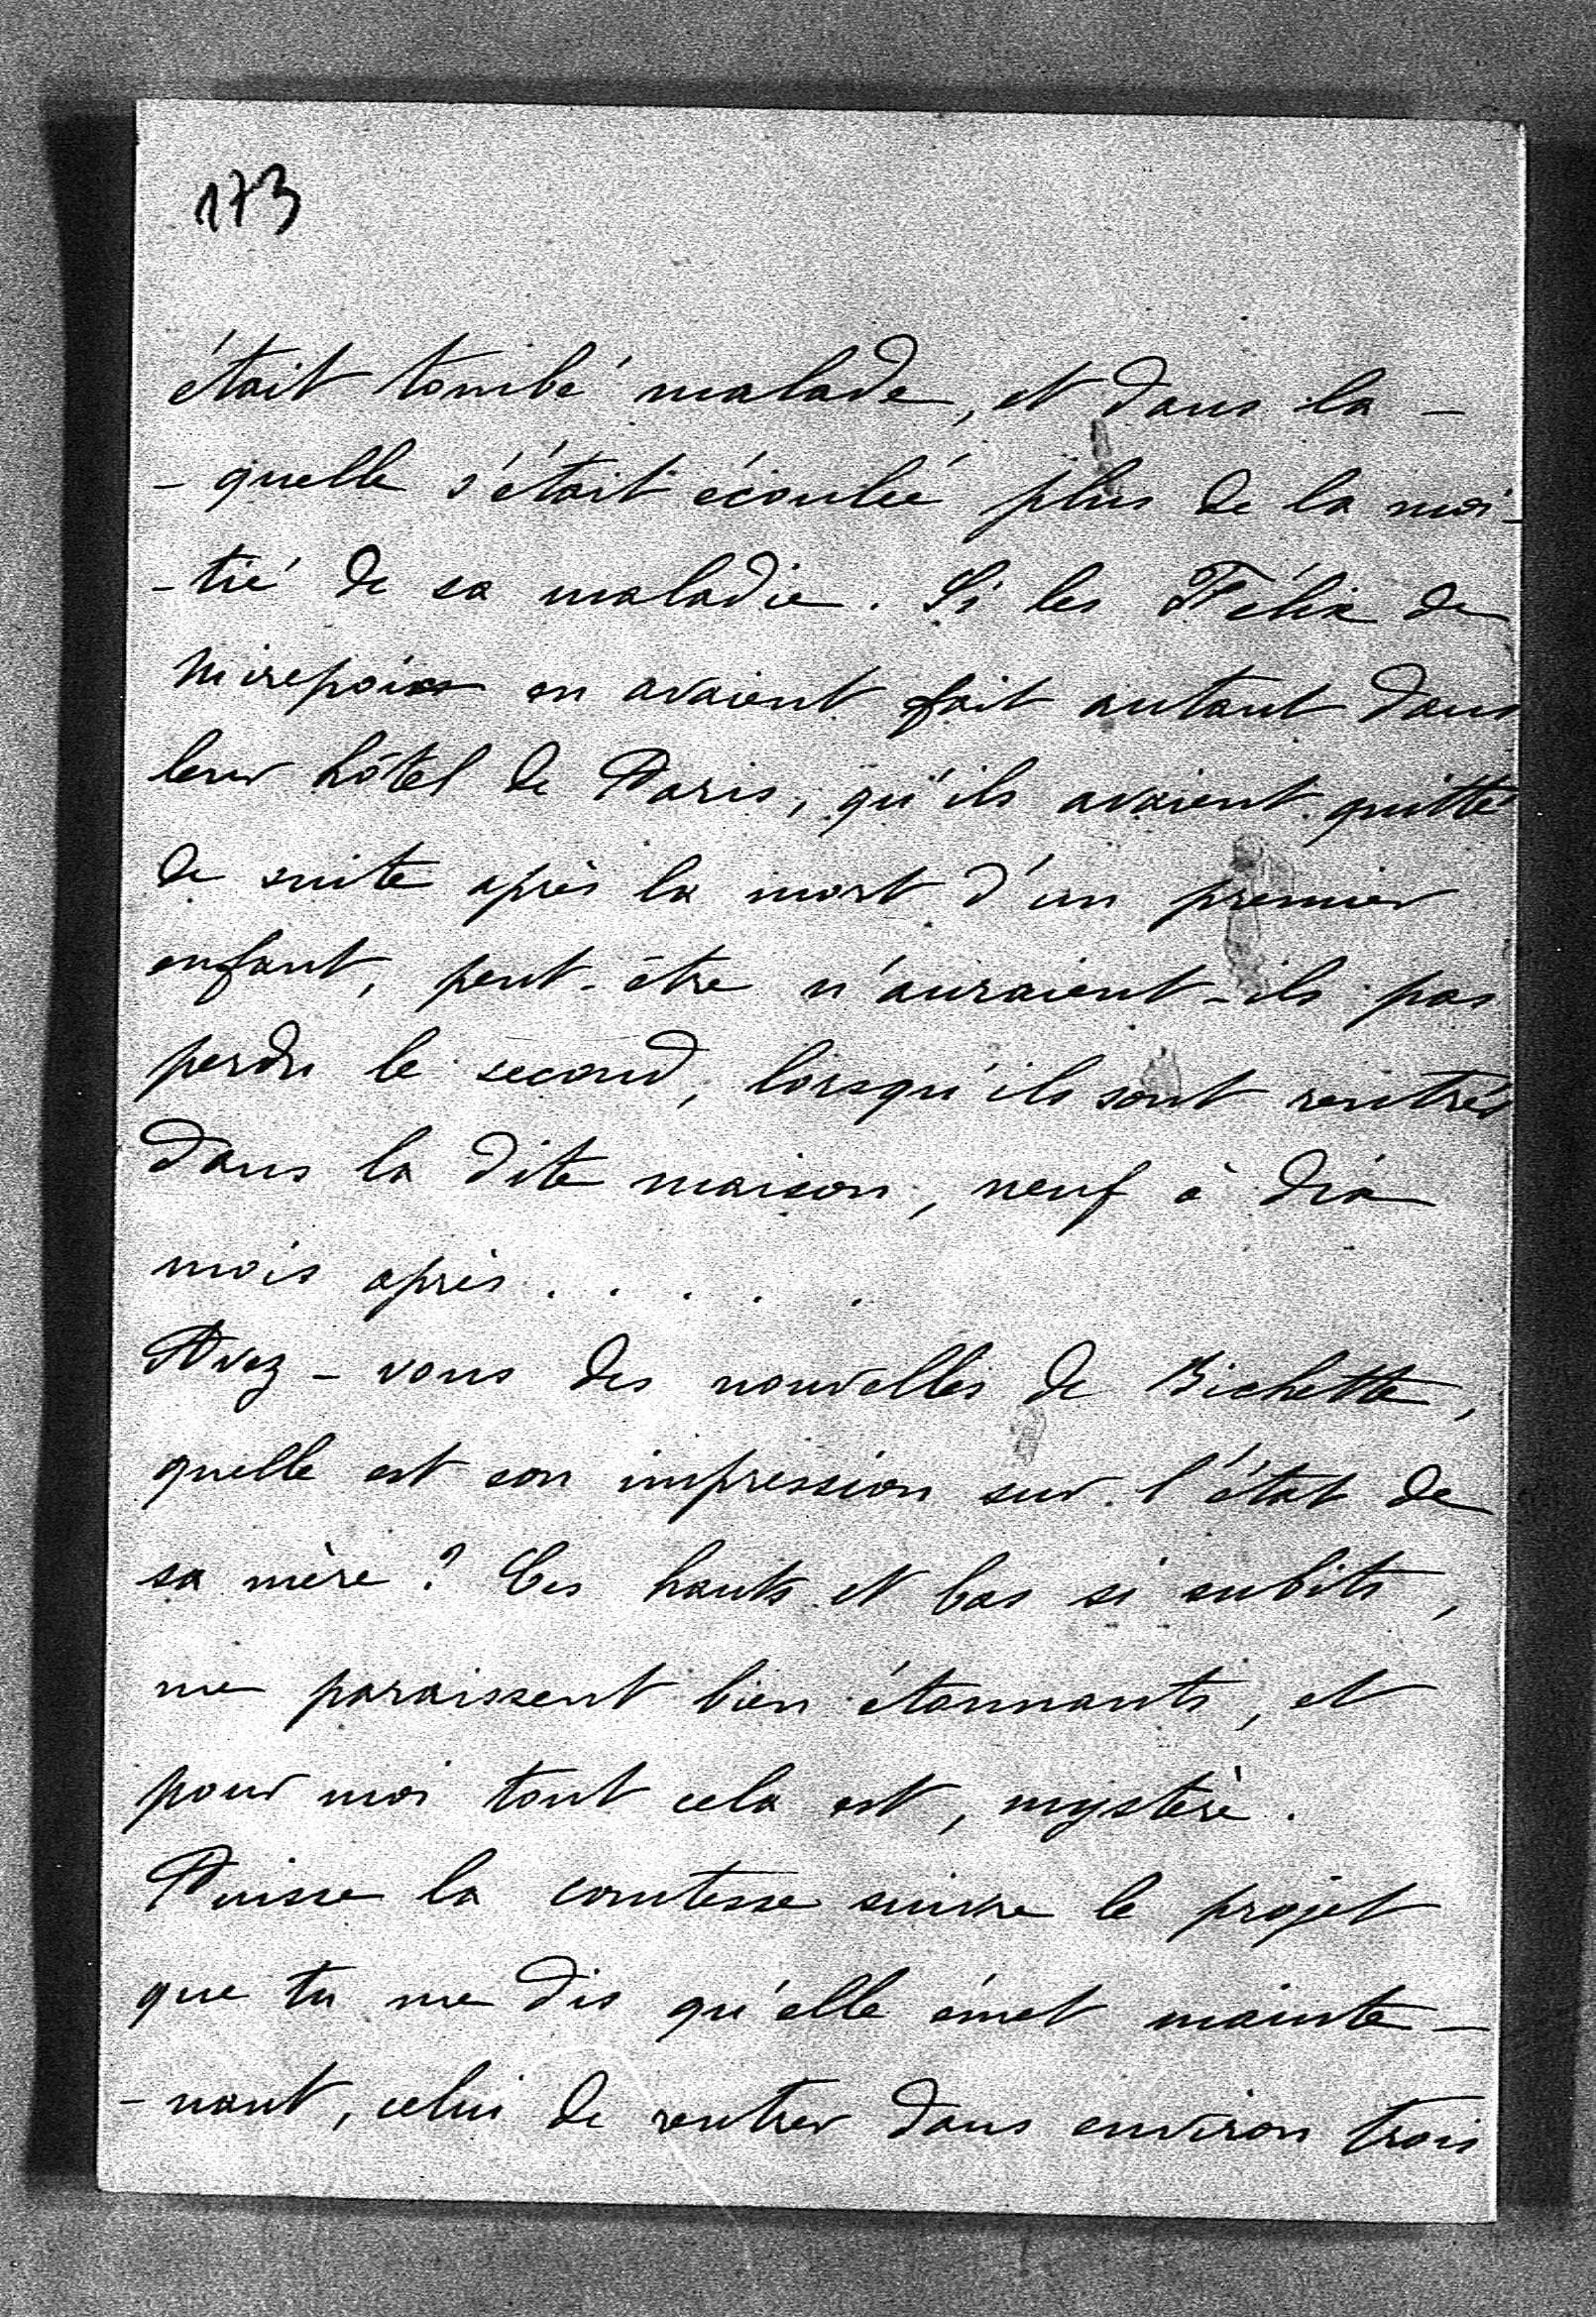 173
était tombé malade, et dans la -
- quelle s'était écoulée plus de la moi-
- tié de sa maladie. Si les Félix de
Mirepoix en avaient fait autant dans
leur hôtel de Paris, qu'ils avaient quitté
de suite après la mort d'un premier
enfant, peut-être n'auraient-ils pas
perdu le second, lorsqu'ils sont rentrés
dans la dite maison, neuf à dix
mois après . . . . .
Avez-vous des nouvelles de Bichette,
quelle est son impression sur l'état de
sa mère ? Ces hauts et bas si subits,
me paraissent bien étonnants, et
pour moi tout cela est, mystère.
Puisse la comtesse suivre le projet
que tu me dis qu'elle émet mainte -
- nant, celui de rentrer dans environ trois